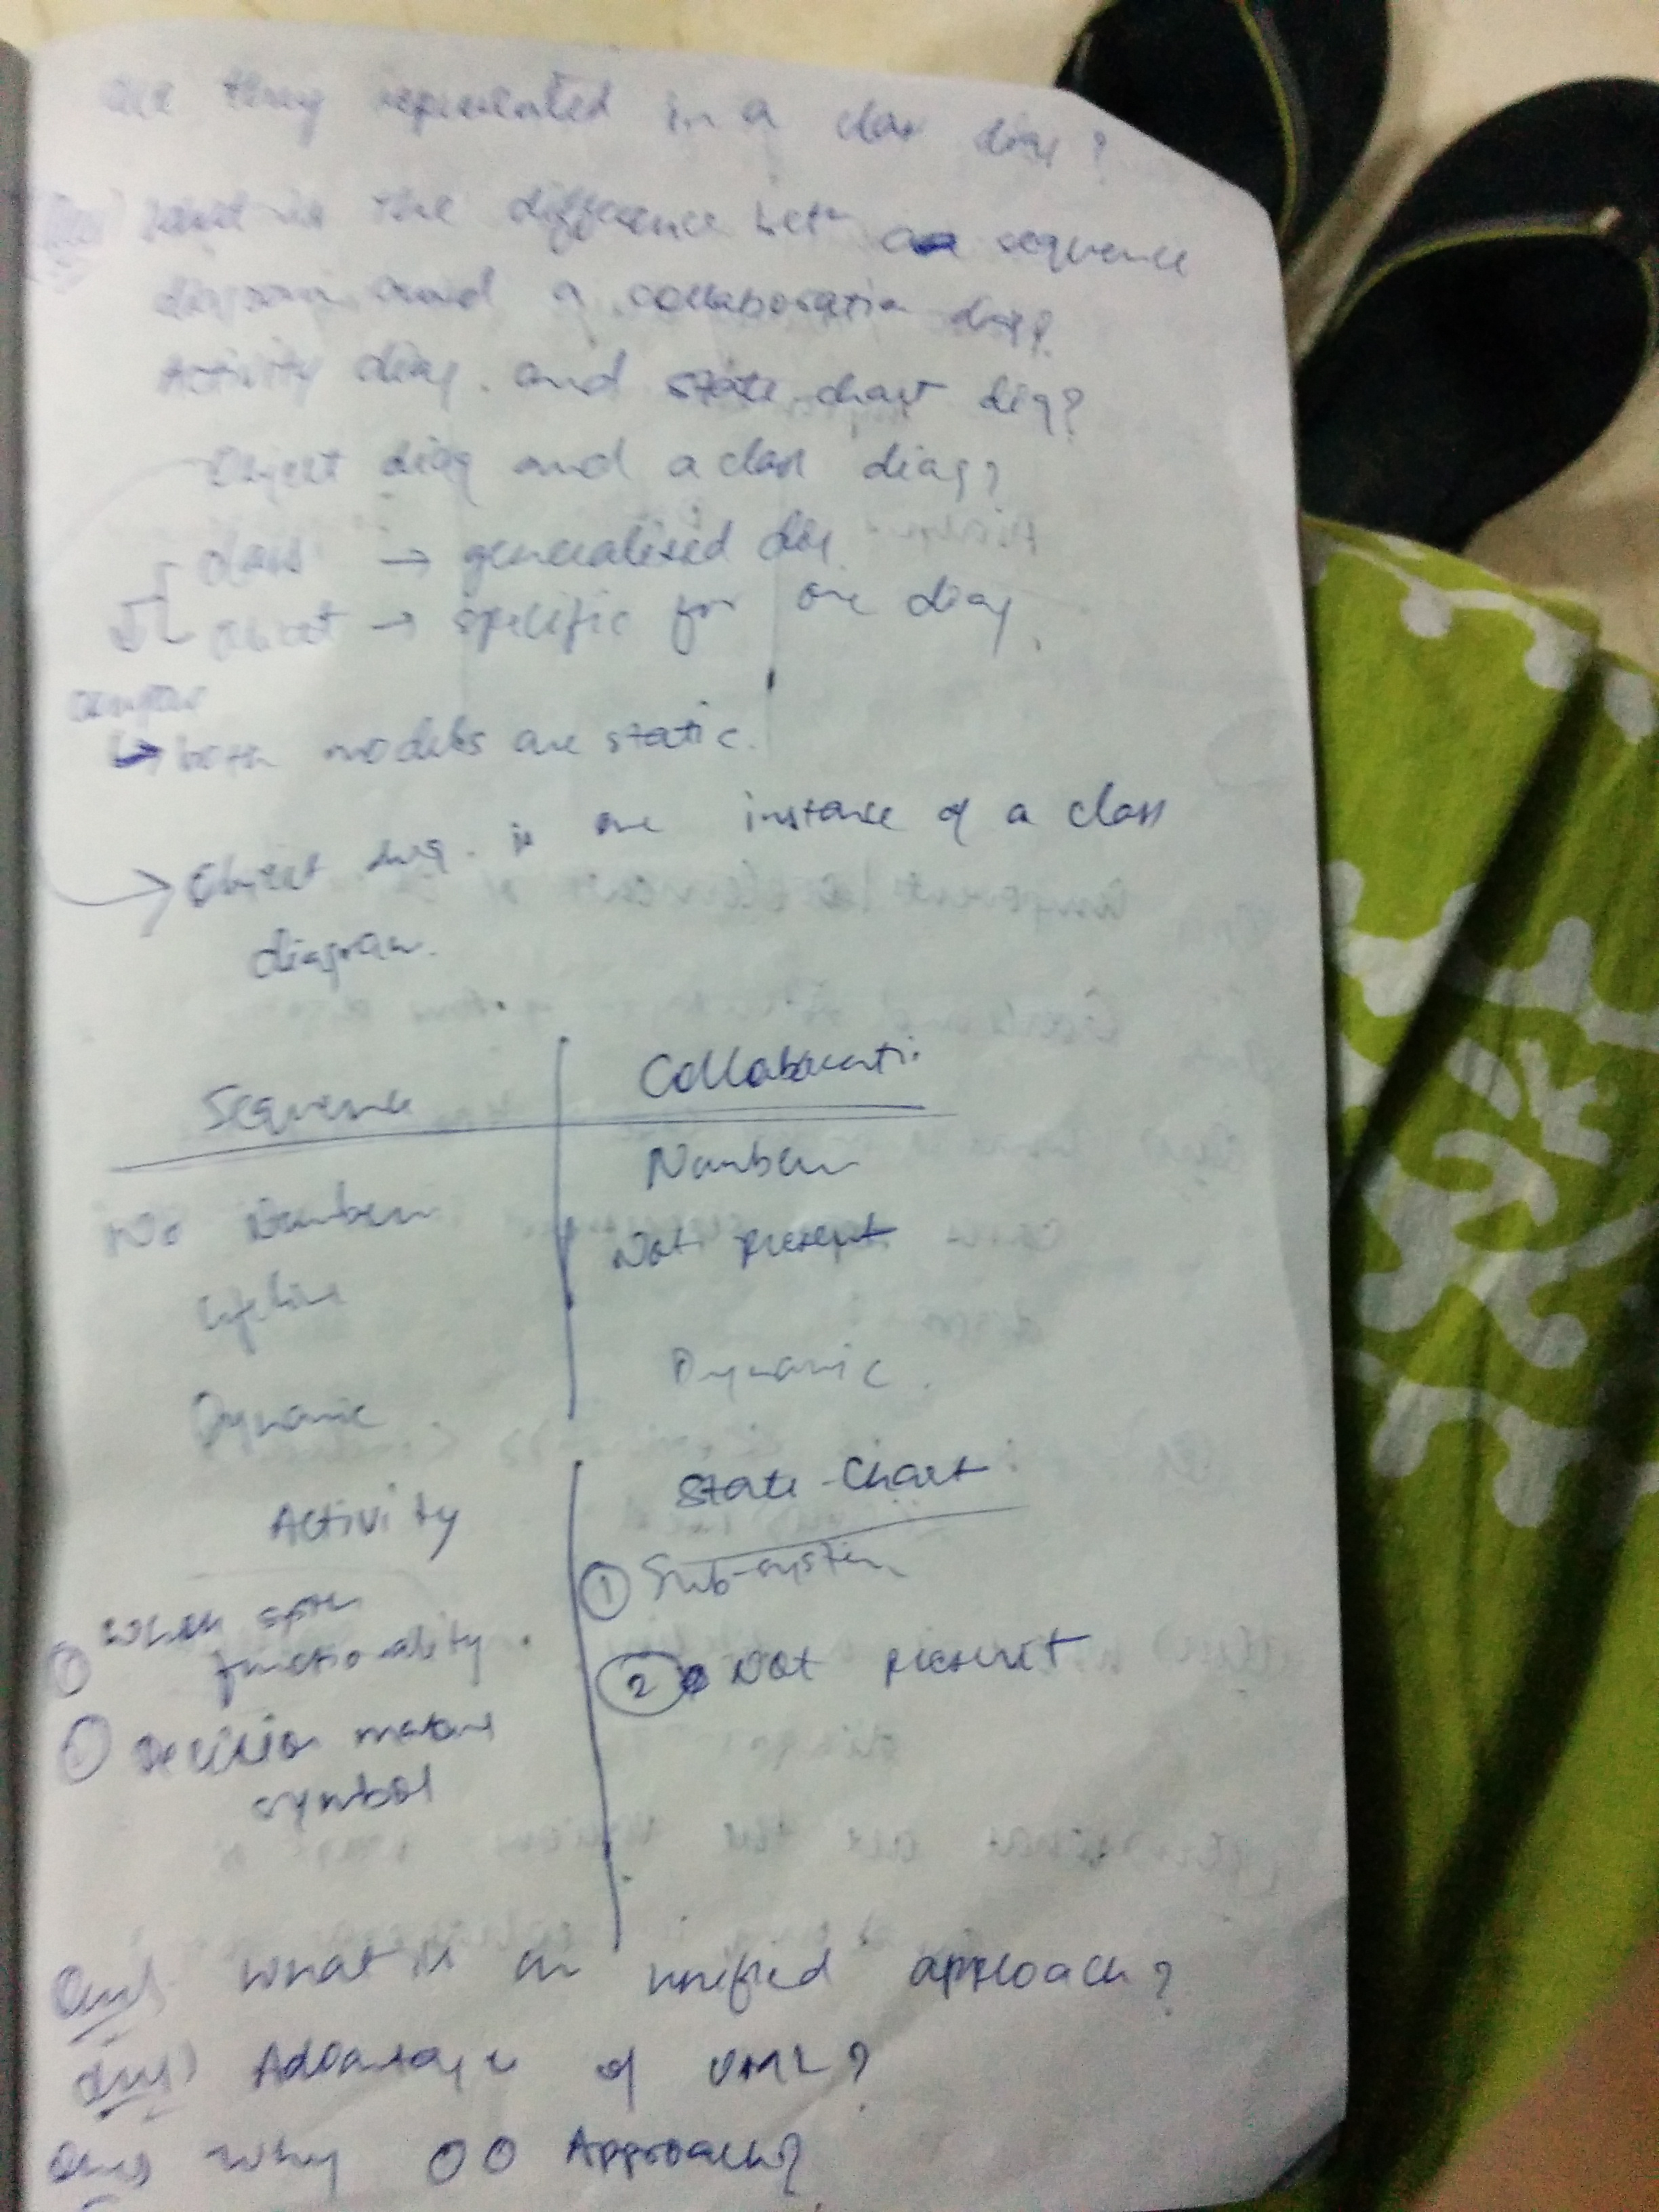 are they represented in a class diag?
Ques) What is the difference betn a sequence
diagram and a collaboration diag?
Activity diag. and state-chart diag?
Object diag and a class diag?
class → generalised diag.
object → specific for one diag.
↳ both models are static.
→ Object diag. is one instance of a class
diagram.
Sequence | Collaborati
No Number | Number
lifeline | Not present
Dynamic. | Dynamic.
Activity | State-Chart
① when system | ① Sub-system
functionality.
Decision making | ② Not present
symbol
Ques) what is an unified approach?
Ques) Advantage of UML?
Ques) Why OO Approach?